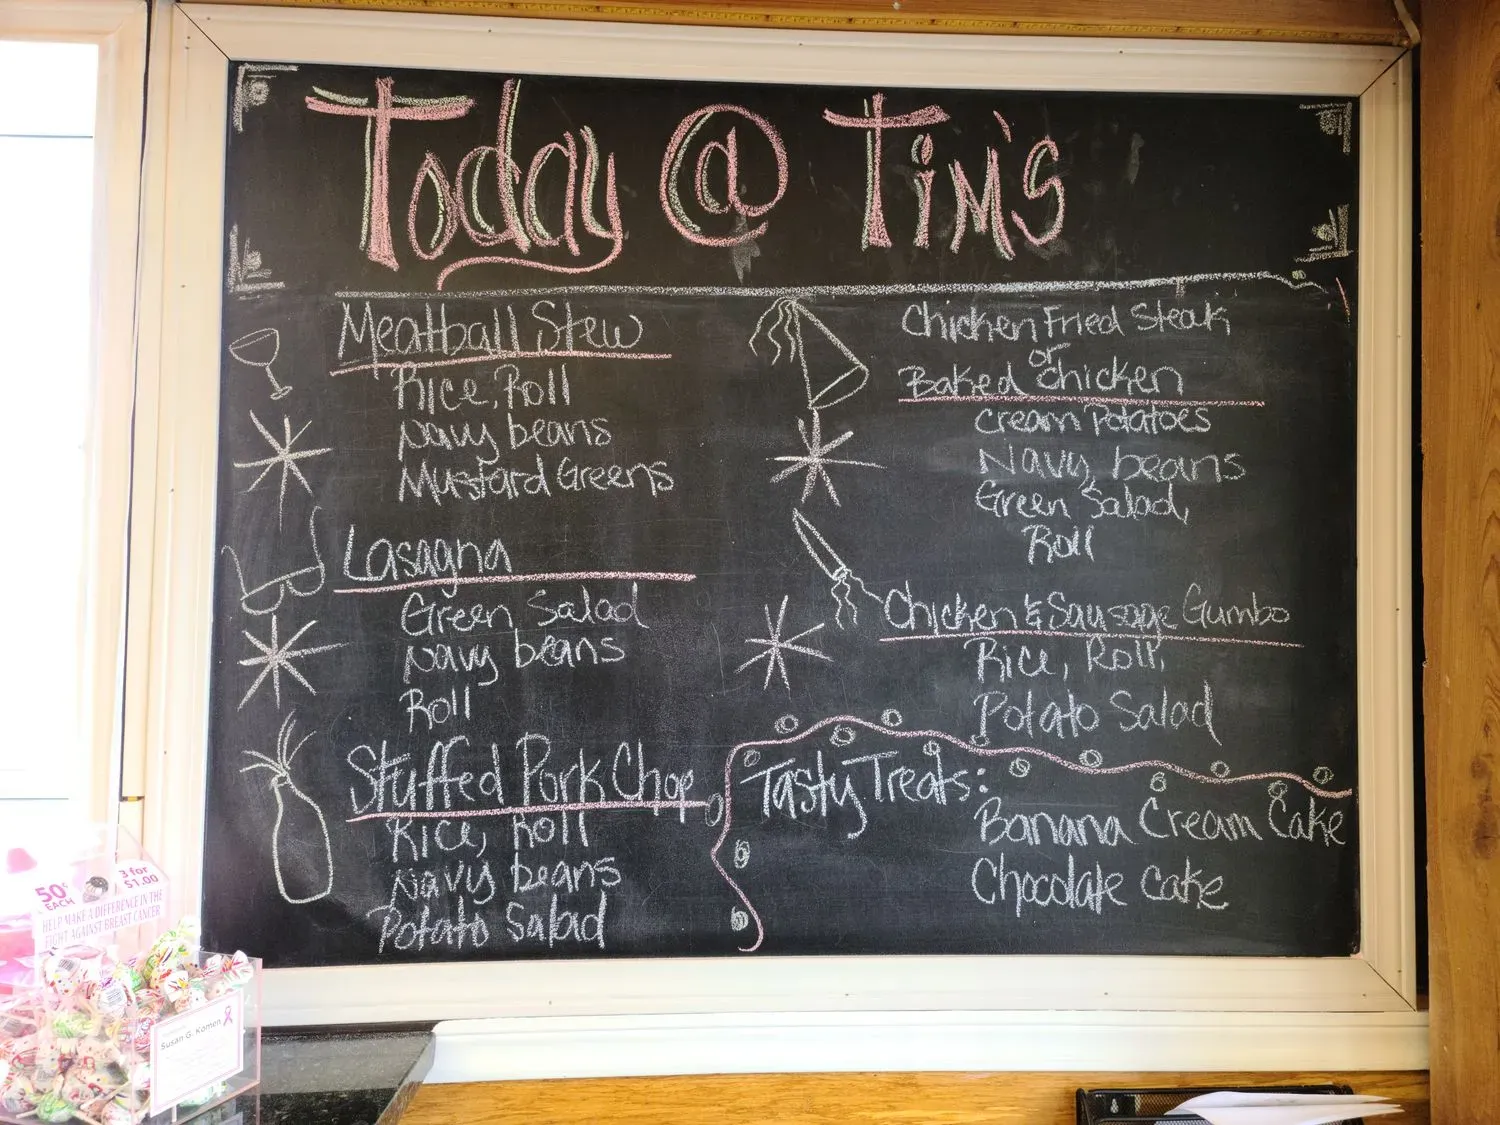 Today @ Tim's
Meatball Stew
Rice, Roll
Navy beans
Mustard Greens
Lasagna
Green Salad
Navy beans
Roll
Stuffed Pork Chop
Rice, Roll
Navy beans
Potato Salad
Chicken Fried Steak
or
Baked Chicken
Cream Potatoes
Navy beans
Green Salad,
Roll
Chicken & Sausage Gumbo
Rice, Roll,
Potato Salad
Tasty Treats:
Banana Cream Cake
Chocolate Cake
50¢
EACH
3 for
$1.00
HELP MAKE A DIFFERENCE IN THE
FIGHT AGAINST BREAST CANCER
Susan G. Komen